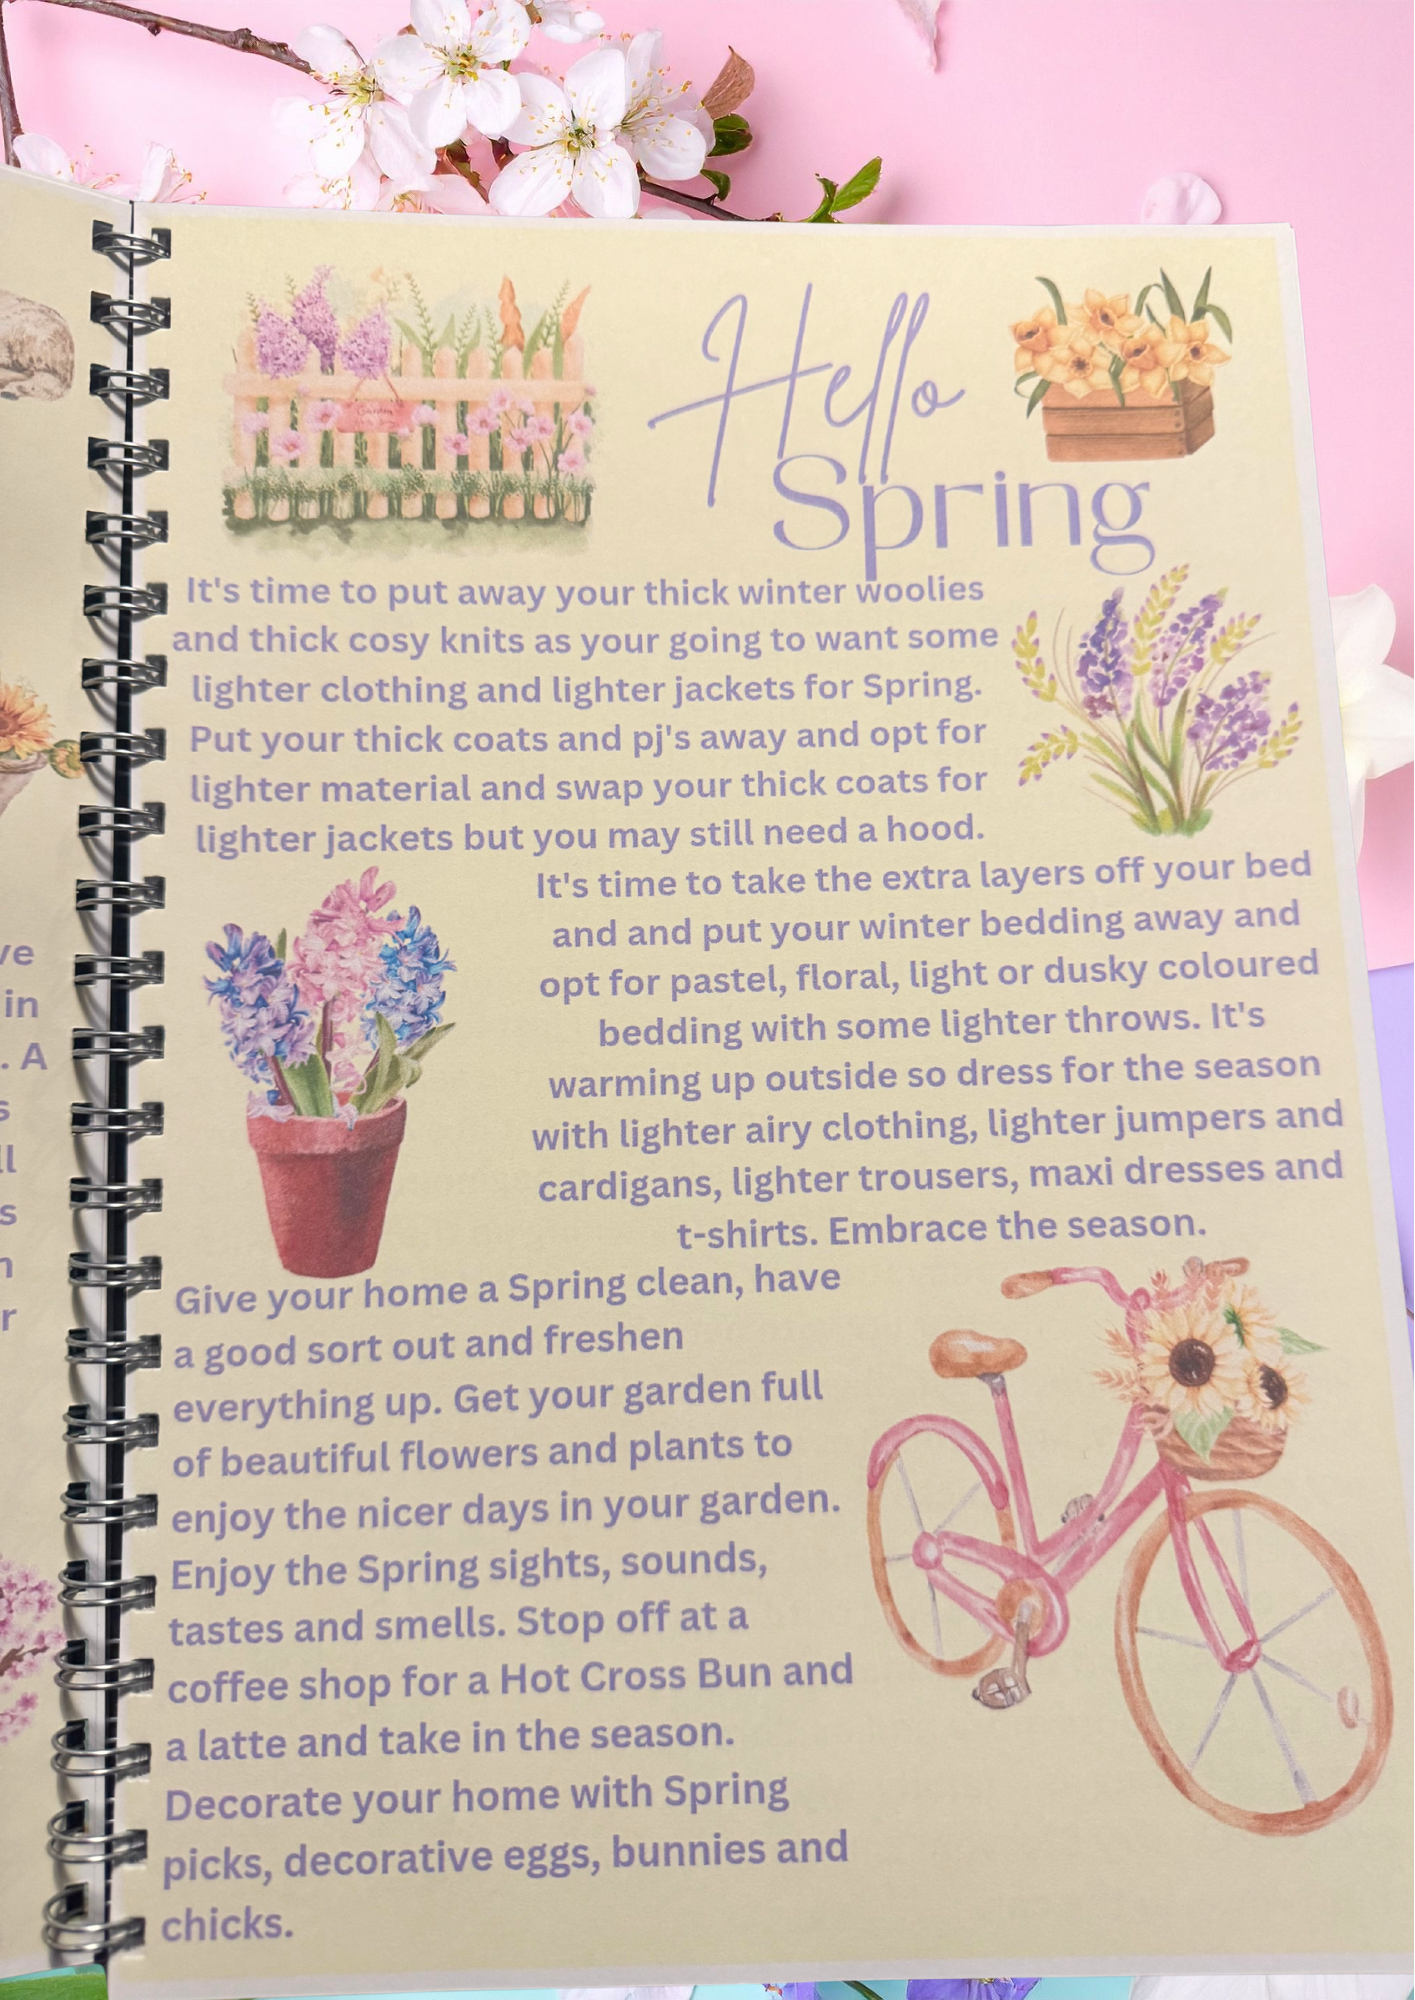 ve
in
. A
s
ll
s
n
r
Hello
Spring
Garden
It's time to put away your thick winter woolies
and thick cosy knits as your going to want some
lighter clothing and lighter jackets for Spring.
Put your thick coats and pj's away and opt for
lighter material and swap your thick coats for
lighter jackets but you may still need a hood.
It's time to take the extra layers off your bed
and and put your winter bedding away and
opt for pastel, floral, light or dusky coloured
bedding with some lighter throws. It's
warming up outside so dress for the season
with lighter airy clothing, lighter jumpers and
cardigans, lighter trousers, maxi dresses and
t-shirts. Embrace the season.
Give your home a Spring clean, have
a good sort out and freshen
everything up. Get your garden full
of beautiful flowers and plants to
enjoy the nicer days in your garden.
Enjoy the Spring sights, sounds,
tastes and smells. Stop off at a
coffee shop for a Hot Cross Bun and
a latte and take in the season.
Decorate your home with Spring
picks, decorative eggs, bunnies and
chicks.